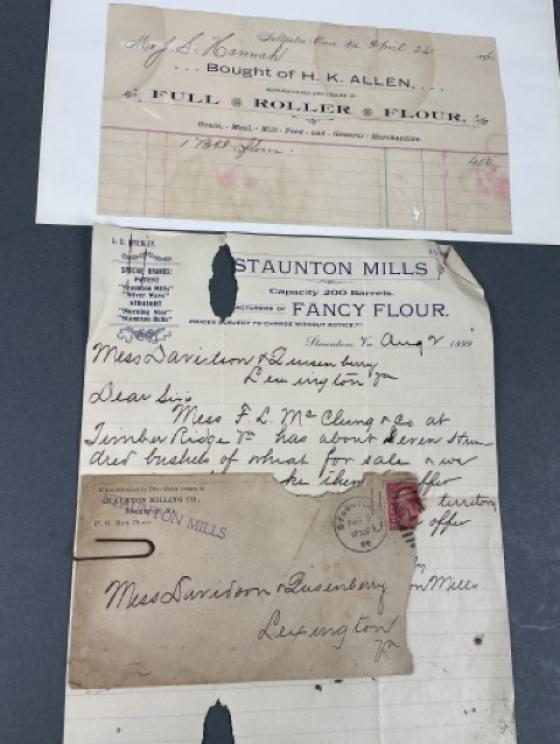 Mr J. S. Hannah
Va. April 22
... Bought of H. K. ALLEN, ...
MANUFACTURER AND DEALER IN
FULL ROLLER FLOUR,
Grain, - Meal, - Mill - Feed - and - General - Merchandise.
1 Bbl. flour. 400
SPECIAL BRANDS:
PATENT
"Staunton Mills"
"Silver Wave"
STRAIGHT
"Morning Star"
"Staunton Belle"
STAUNTON MILLS
Capacity 200 Barrels.
FANCY FLOUR.
PRICES SUBJECT TO CHANGE WITHOUT NOTICE.
Staunton, Va. Aug 2 1899
Mess Davidson & Quisenberry
Lexington Va
Dear Sirs
Mess F. L. McClung & Co at
Timber Ridge Va has about Seven Hun-
dred bushels of wheat for sale & we
he them offer
territory
offer
Mills
STAUNTON MILLING CO.,
STAUNTON MILLS
Mess Davidson & Quisenberry
Lexington
Va